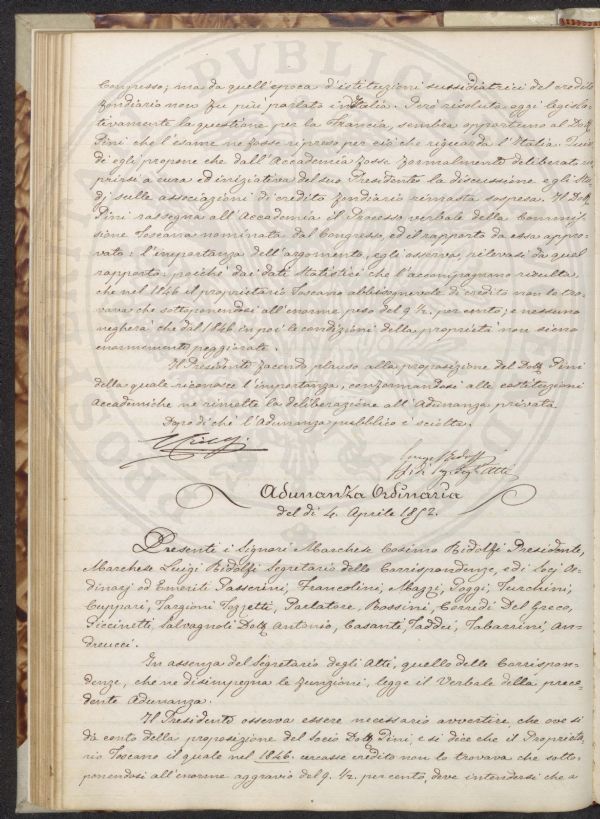 Congresso; ma da quell'epoca d'istituzioni sussidiatrici del credito
fondiario non fu più parlato in Italia. Però risoluta oggi legisla-
tivamente la questione per la Francia, sembra opportuno al Dott.
Pini che l'esame ne fosse ripreso per ciò che riguarda l'Italia. Quin-
di egli propone che dall'Accademia fosse formalmente deliberato ria-
prirsi a cura ed iniziativa del suo Presidente la discussione e gli Stu-
dj sulle associazioni di credito fondiario rimasta sospesa. Il Dott.
Pini rassegna all'Accademia il Processo verbale della Commis-
sione Toscana nominata dal Congresso, ed il rapporto da essa appro-
vato: l'importanza dell'argomento, egli osserva, rilevasi da quel
rapporto: poichè dai dati statistici che l'accompagnano risulta
che nel 1846 il proprietario Toscano abbisognevole di credito non lo tro-
vava che sottoponendosi all'enorme peso del 9 ½ per cento; e nessuno
negherà che dal 1846 in poi le condizioni della proprietà non sieno
enormemente peggiorate.
Il Presidente facendo plauso alla proposizione del Dott. Pini
della quale riconosce l'importanza, conformandosi alle costituzioni
Accademiche ne rimette la deliberazione all'Adunanza privata.
Dopo di che l'Adunanza pubblica è sciolta.
Adunanza Ordinaria
del dì 4. Aprile 1852.
Presenti i Signori Marchese Cosimo Ridolfi Presidente,
Marchese Luigi Ridolfi Segretario delle Corrispondenze, ed i Socj Or-
dinarj ed Emeriti Passerini, Francolini, Mazzi, Poggi, Turchini,
Cuppari, Targioni Tozzetti, Parlatore, Rossini, Corridi, Del Greco,
Piccinetti, Salvagnoli Dott. Antonio, Casanti, Taddei, Tabarrini, An-
dreucci.
In assenza del Segretario degli Atti, quello delle Corrispon-
denze, che ne disimpegna le funzioni, legge il Verbale della prece-
dente Adunanza.
Il Presidente osserva essere necessario avvertire, che ove si
dà conto della proposizione del Socio Dott. Pini, e si dice che il Proprieta-
rio Toscano il quale nel 1846. cercasse credito non lo trovava che sotto-
ponendosi all'enorme aggravio del 9. ½. per cento, deve intendersi che a